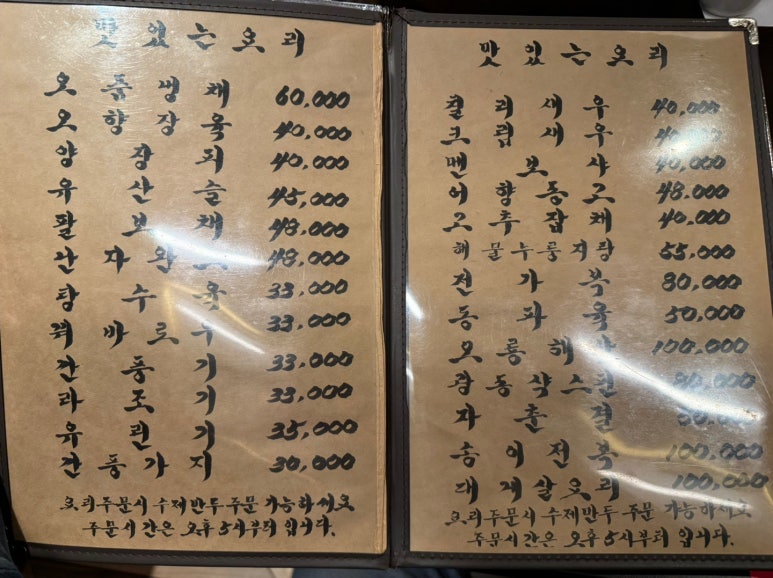 맛있는요리
오품냉채 60,000
오향장육 40,000
양장피 40,000
유산슬 45,000
팔보채 48,000
난자완스 48,000
탕수육 33,000
꿔바로우 33,000
깐풍기 33,000
라조기 33,000
유린기 35,000
깐풍가지 30,000
요리주문시 수제만두주문 가능하세요
주문시간은 오후5시부터 입니다.
맛있는요리
칠리새우 40,000
크림새우 40,000
멘보샤 40,000
어향동고 48,000
고추잡채 40,000
해물누룽지탕 55,000
전가복 80,000
동파육 50,000
오룡해삼 100,000
광동삭스핀
자춘결
송이전복 100,000
대게살요리 100,000
요리주문시 수제만두 주문 가능하시오
주문시간은 오후5시부터 입니다.